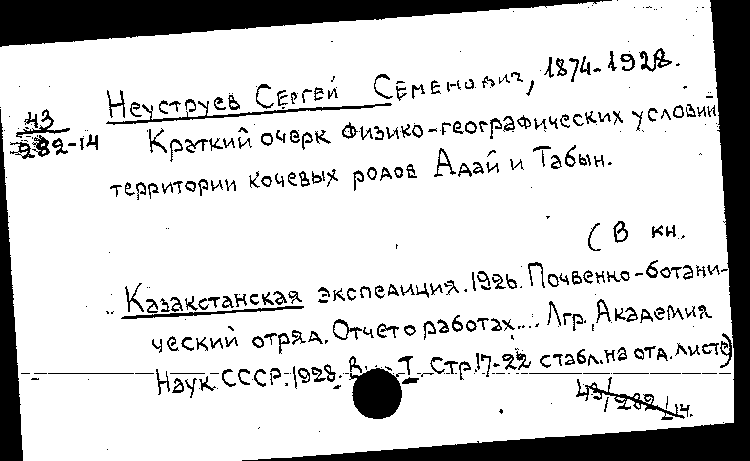 Неуструев Сергей Семенович, 1874-1928.
43
282-14
Краткий очерк физико-географических условий
территории кочевых родов Адай и Табын.
(В кн.
Казакстанская экспедиция. 1926. Почвенно-ботани-
ческий отряд. Отчет о работах.... Лгр., Академия
Наук СССР. 1928. I. Стр. 17-22 с табл. на отд. листе)
43/282/14.